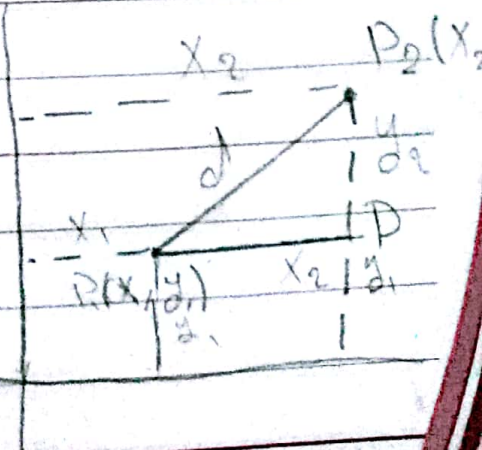 x₂ P₂(x₂
y₂
d
x₁ P
P₁(x₁y₁) x₂ y₁
y₁